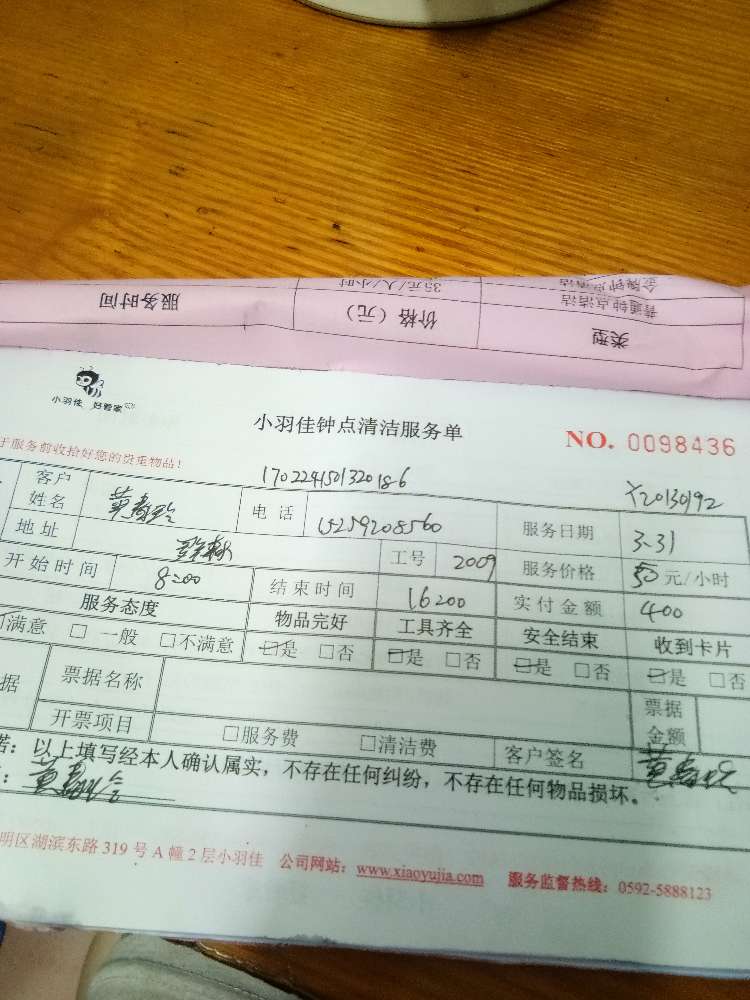 金牌钟点清洁
普通钟点清洁 35元/人/小时
类型 价格（元） 服务时间
小羽佳 好管家
小羽佳钟点清洁服务单 NO. 0098436
于服务前收拾好您的贵重物品！
170224150132018-6 Y20130192
客户姓名 电话 15259208560 服务日期 3.31
地址 工号 2009 服务价格 50元/小时
开始时间 8:00 结束时间 16:00 实付金额 400
服务态度 物品完好 工具齐全 安全结束 收到卡片
满意 □一般 □不满意 □是 □否 □是 □否 □是 □否 □是 □否
据 票据名称 票据金额
开票项目 □服务费 □清洁费 客户签名
诺：以上填写经本人确认属实，不存在任何纠纷，不存在任何物品损坏。
明区湖滨东路319号A幢2层小羽佳 公司网站：www.xiaoyujia.com 服务监督热线：0592-5888123